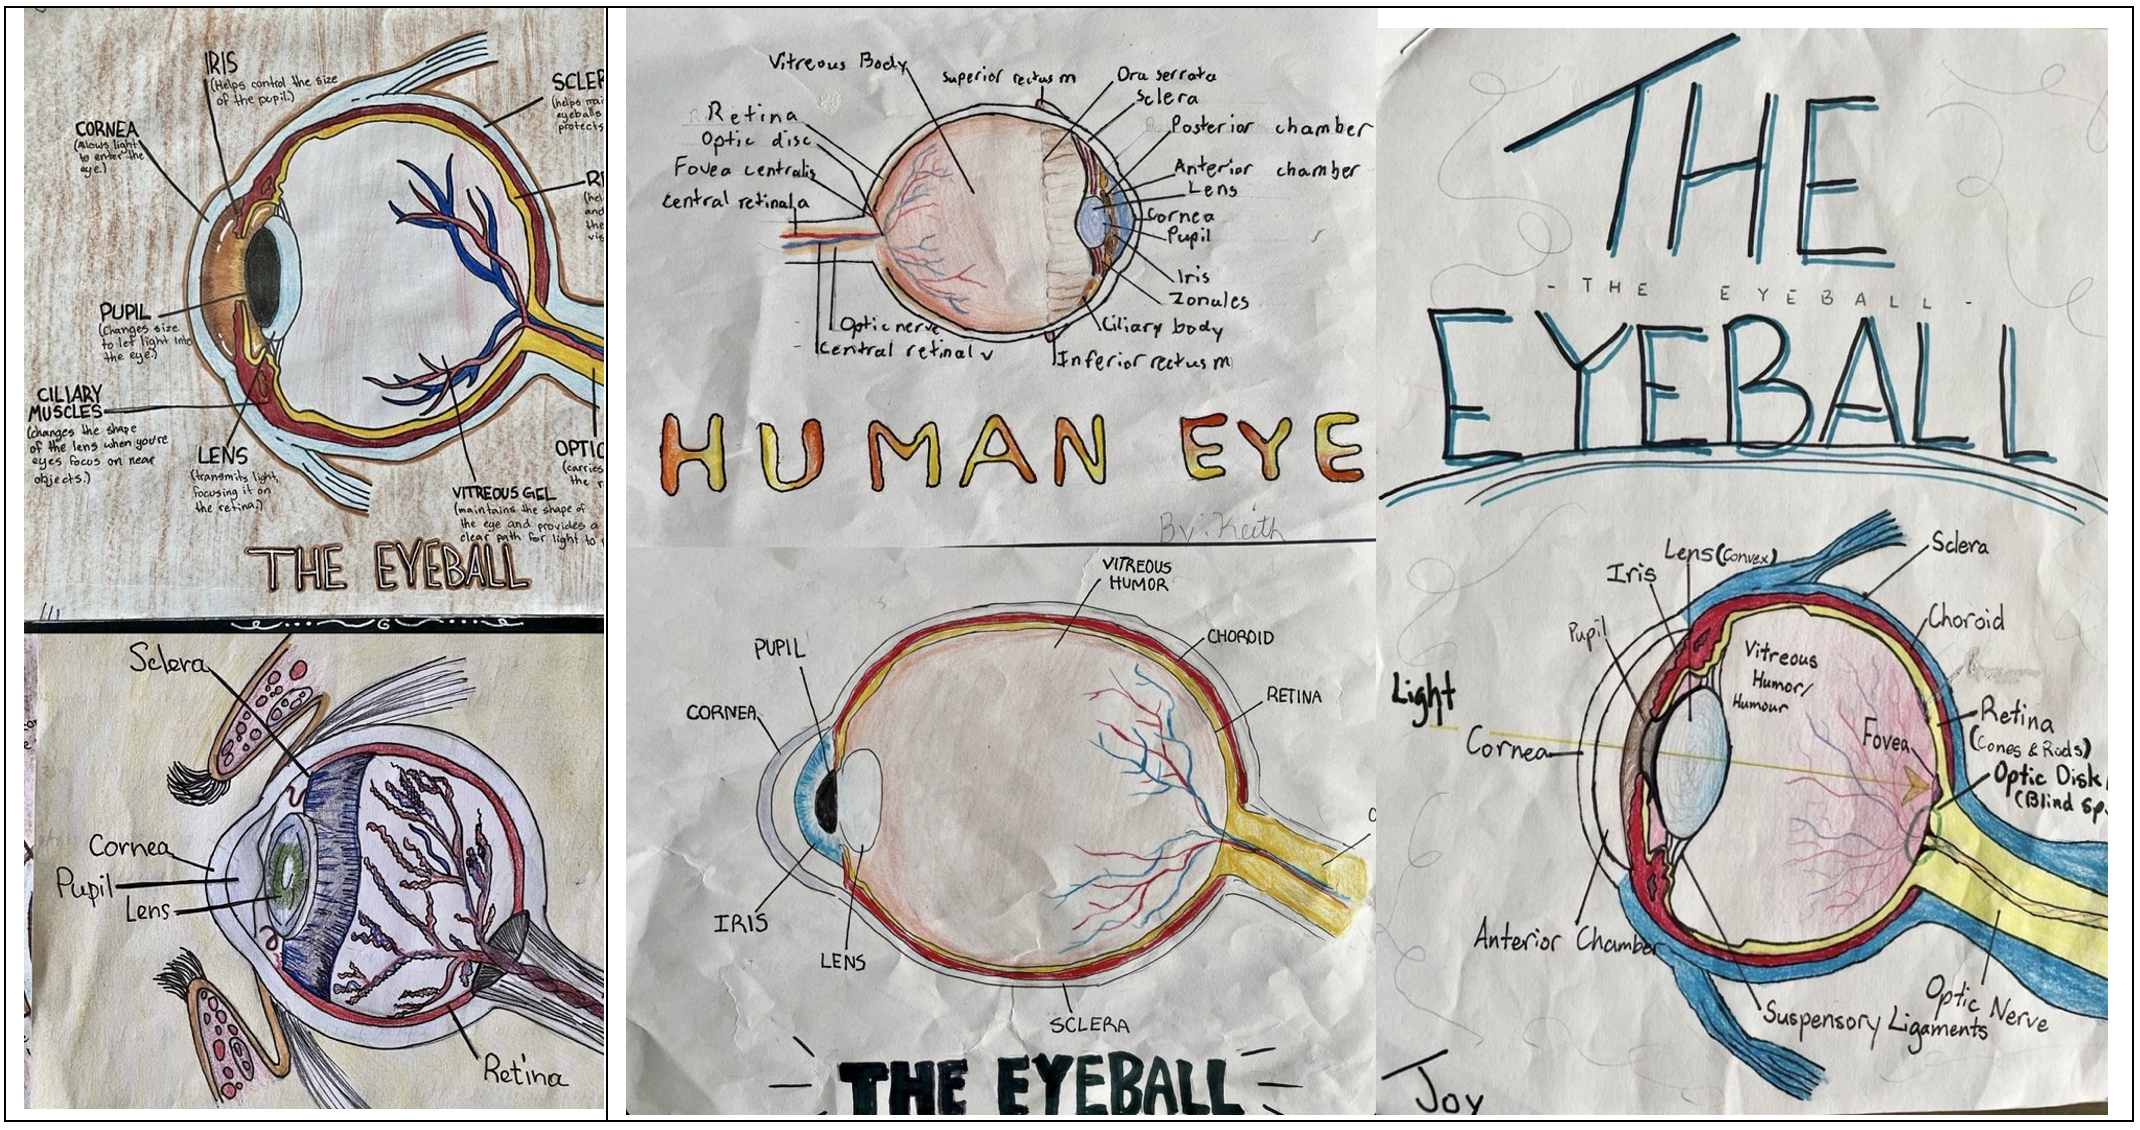 IRIS
(Helps control the size
of the pupil.)
SCLER
(helps mai
eyeballs
protects
CORNEA
(Allows light
to enter the
eye.)
RE
(hel
and
the
vis
PUPIL
(Changes size
to let light into
the eye.)
CILIARY
MUSCLES
(changes the shape
of the lens when you're
eyes focus on near
objects.)
LENS
(transmits light,
focusing it on
the retina.)
OPTIC
(carries
the r
VITREOUS GEL
(maintains the shape of
the eye and provides a
clear path for light to
THE EYEBALL
G
Sclera
Cornea
Pupil
Lens
Retina
Vitreous Body
Superior rectus m
Ora serrata
Sclera
Retina
Posterior chamber
Optic disc
Fovea centralis
Anterior chamber
Lens
central retinal a
Cornea
Pupil
Iris
Zonules
Optic nerve
Ciliary body
Central retinal v
Inferior rectus m
HUMAN EYE
By: Keith
VITREOUS
HUMOR
PUPIL
CHOROID
CORNEA
RETINA
O
IRIS
LENS
SCLERA
THE EYEBALL
THE
- THE EYEBALL -
EYEBALL
Lens (Convex)
Sclera
Iris
Pupil
Choroid
Vitreous
Humor/
Humour
Light
Retina
(Cones & Rods)
Cornea
Fovea
Optic Disk/
(Blind sp
Anterior Chamber
Optic Nerve
Suspensory Ligaments
Joy